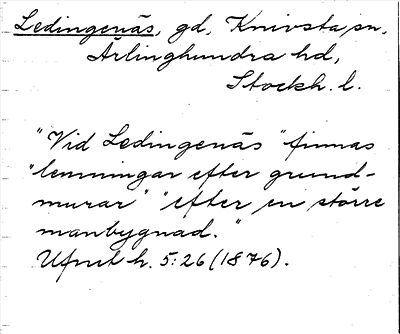 Ledingenäs, gd, Knivsta sn,
Ärlinghundra hd,
Stockh. l.
"Vid Ledingenäs" finnas
"lemningar efter grund-
murar" "efter en större
manbygnad."
Ufmt h. 5:26 (1876).